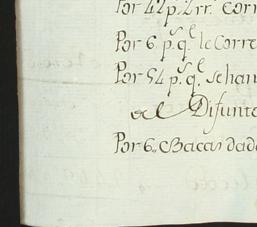 Por 42 p.s 2 rr.s Corr
Por 6 p.s q.e le Corre
Por 54 p.s q.e se han
al Difunto
Por 6,, Bacas dad